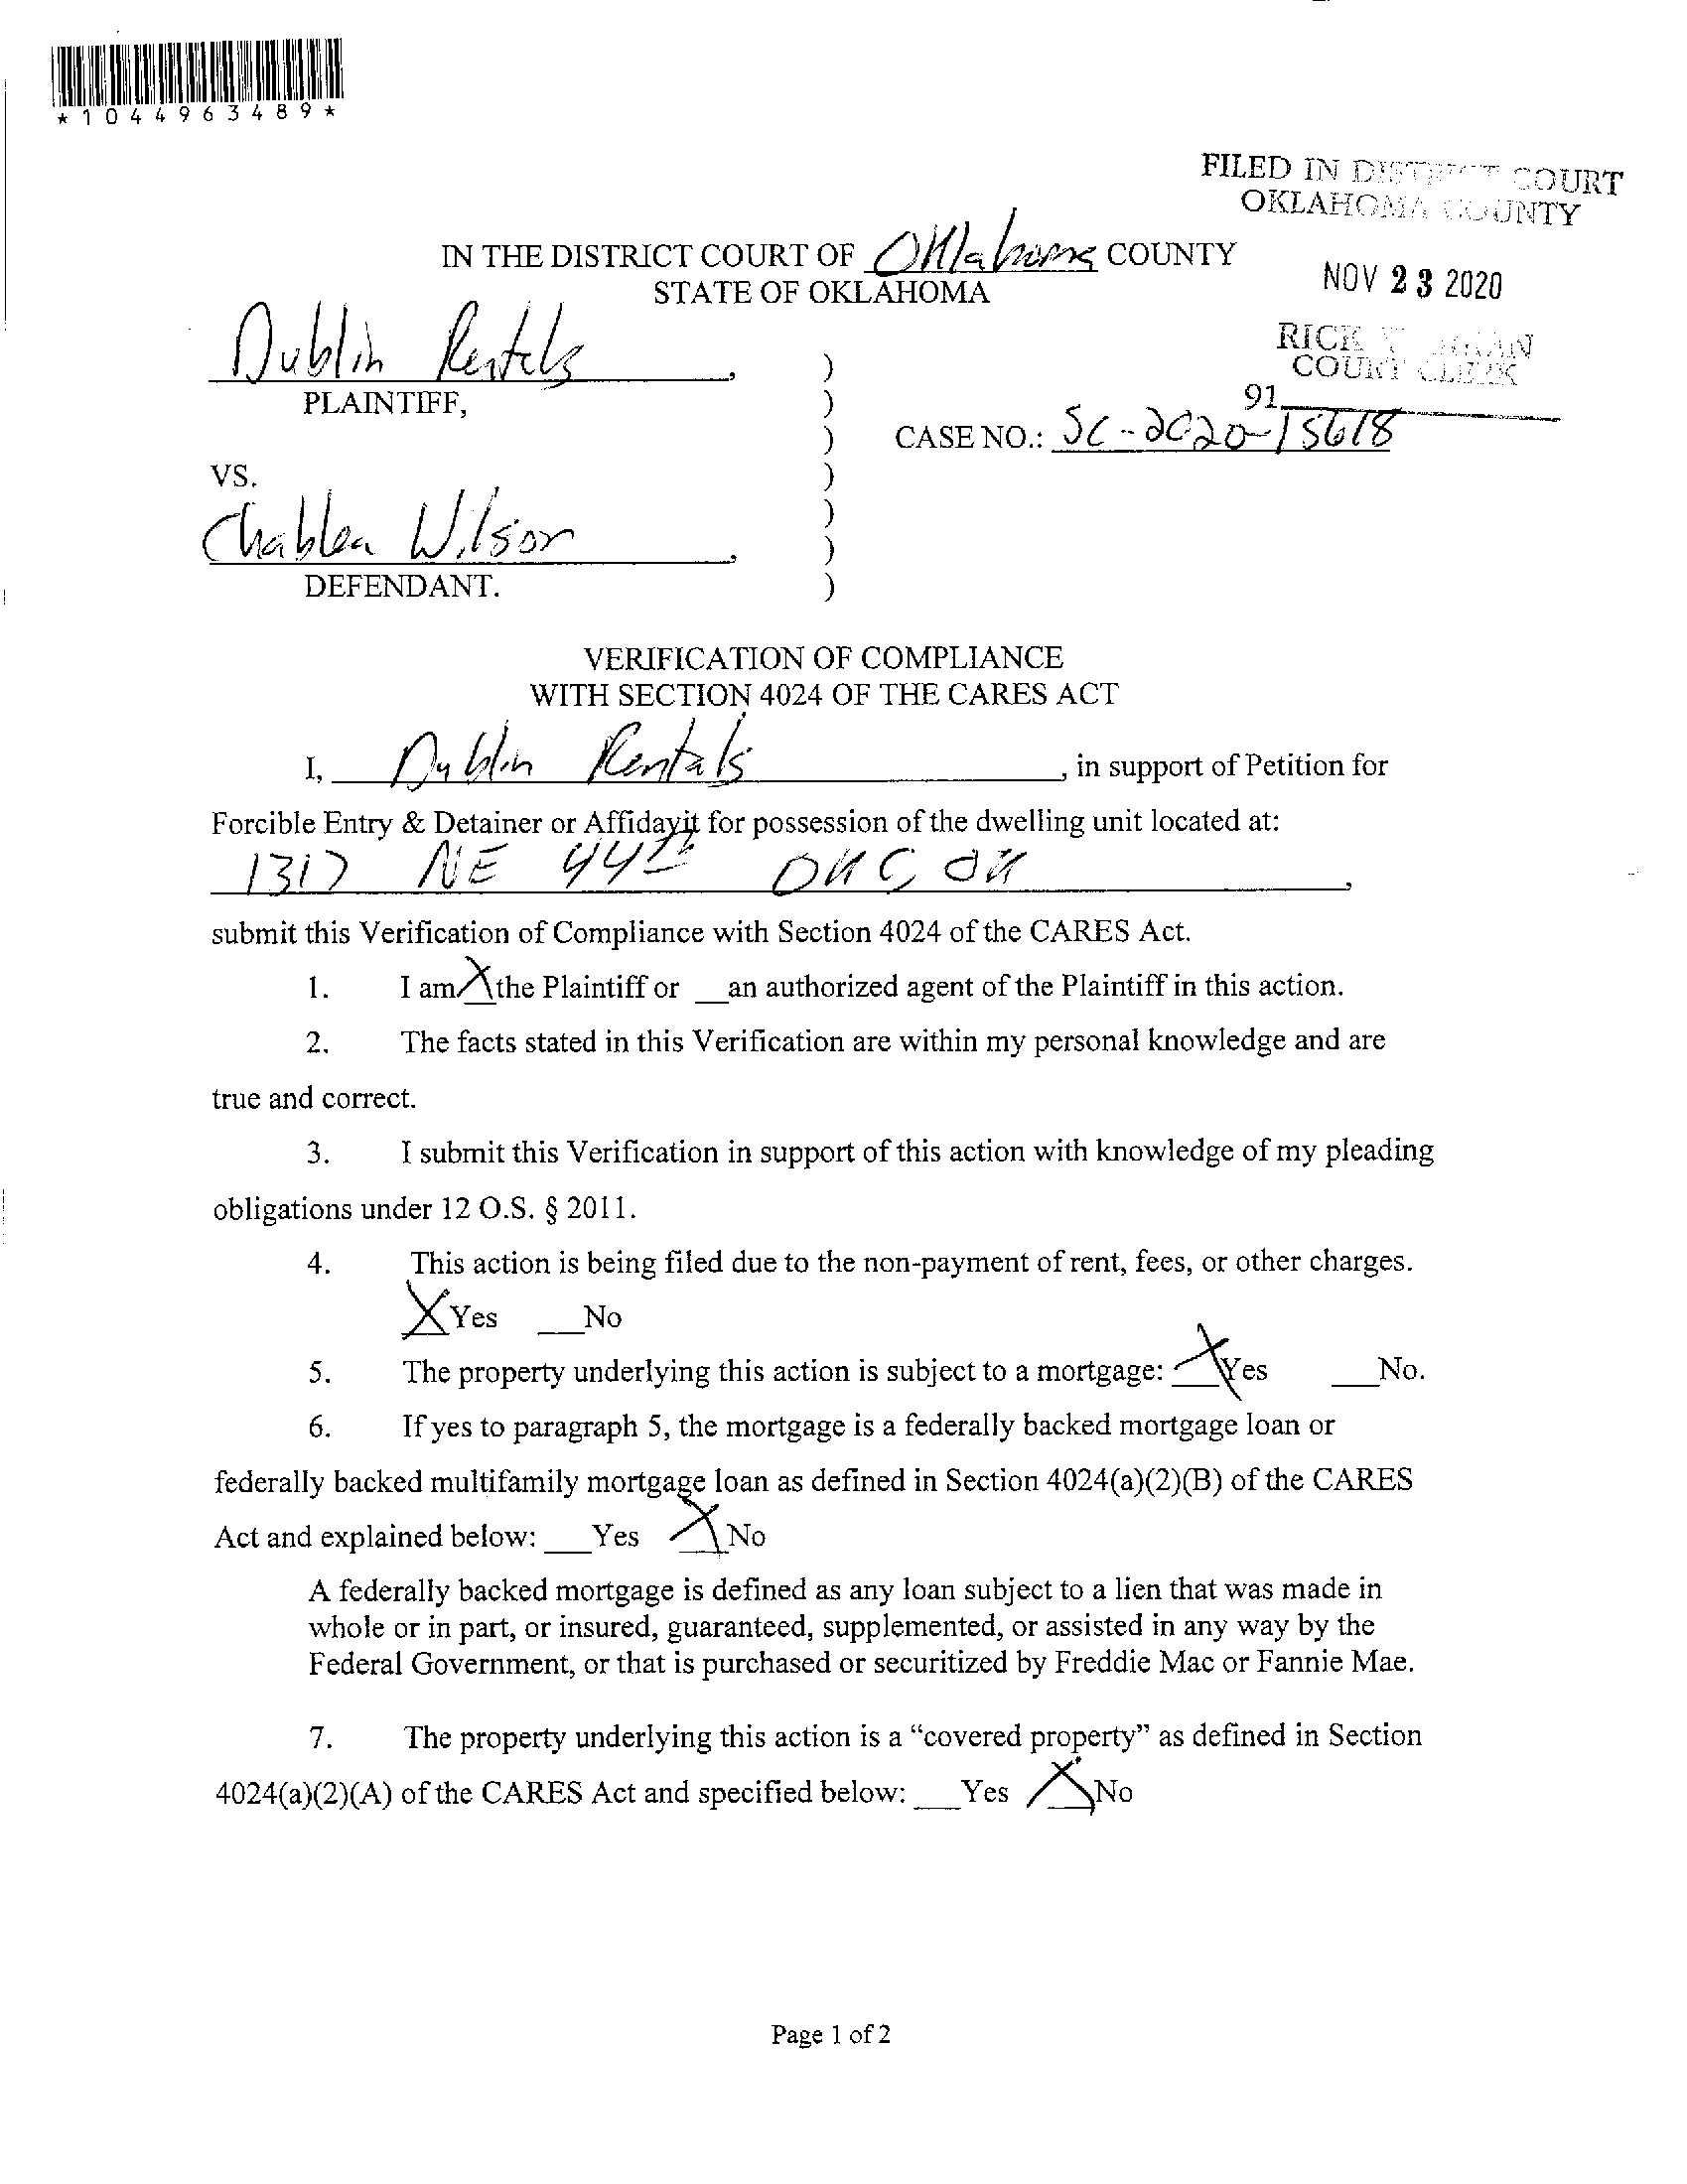 *1044963489*
FILED IN DISTRICT COURT
OKLAHOMA COUNTY
IN THE DISTRICT COURT OF Oklahoma COUNTY
STATE OF OKLAHOMA
NOV 23 2020
RICK
COURT CLERK
91
Dublin Rentals,
PLAINTIFF,
CASE NO.: SC-2020-15618
VS.
Chablea Wilson,
DEFENDANT.
)
)
)
)
)
)
)
VERIFICATION OF COMPLIANCE
WITH SECTION 4024 OF THE CARES ACT
I, Dublin Rentals, in support of Petition for
Forcible Entry & Detainer or Affidavit for possession of the dwelling unit located at:
1317 NE 44th OKC OK,
submit this Verification of Compliance with Section 4024 of the CARES Act.
1. I am X the Plaintiff or __an authorized agent of the Plaintiff in this action.
2. The facts stated in this Verification are within my personal knowledge and are
true and correct.
3. I submit this Verification in support of this action with knowledge of my pleading
obligations under 12 O.S. § 2011.
4. This action is being filed due to the non-payment of rent, fees, or other charges.
X Yes ___No
5. The property underlying this action is subject to a mortgage: X Yes ___No.
6. If yes to paragraph 5, the mortgage is a federally backed mortgage loan or
federally backed multifamily mortgage loan as defined in Section 4024(a)(2)(B) of the CARES
Act and explained below: ___Yes X No
A federally backed mortgage is defined as any loan subject to a lien that was made in
whole or in part, or insured, guaranteed, supplemented, or assisted in any way by the
Federal Government, or that is purchased or securitized by Freddie Mac or Fannie Mae.
7. The property underlying this action is a “covered property” as defined in Section
4024(a)(2)(A) of the CARES Act and specified below: ___Yes X No
Page 1 of 2